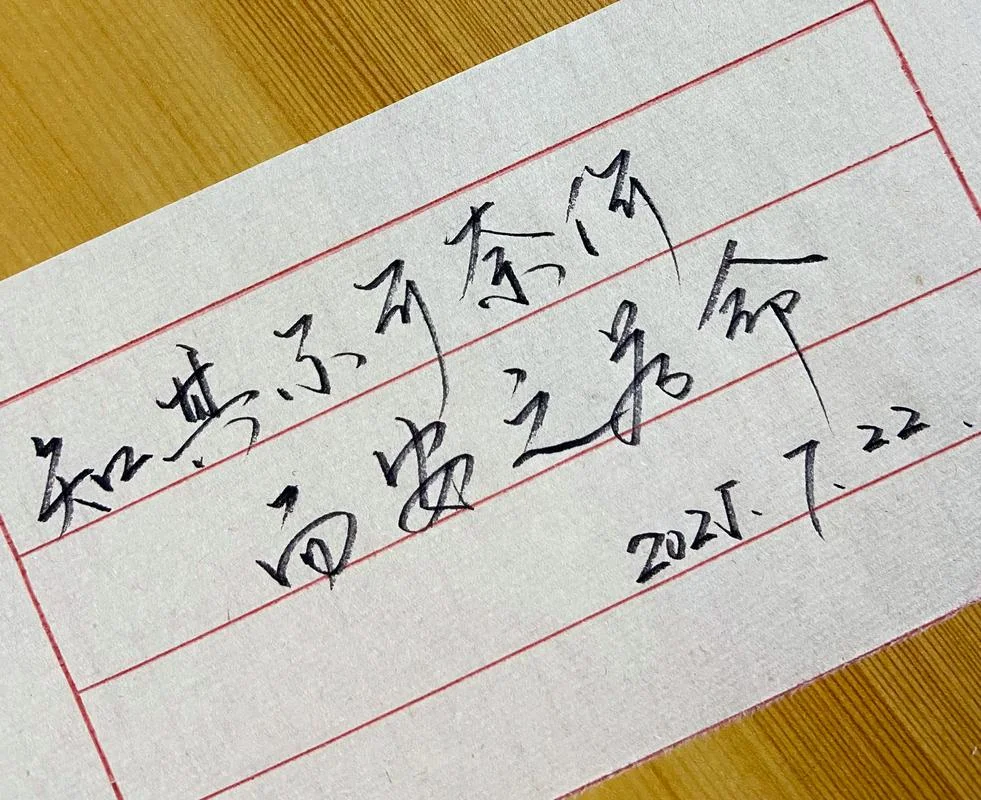 知其不可奈何
而安之若命
2025.7.22.